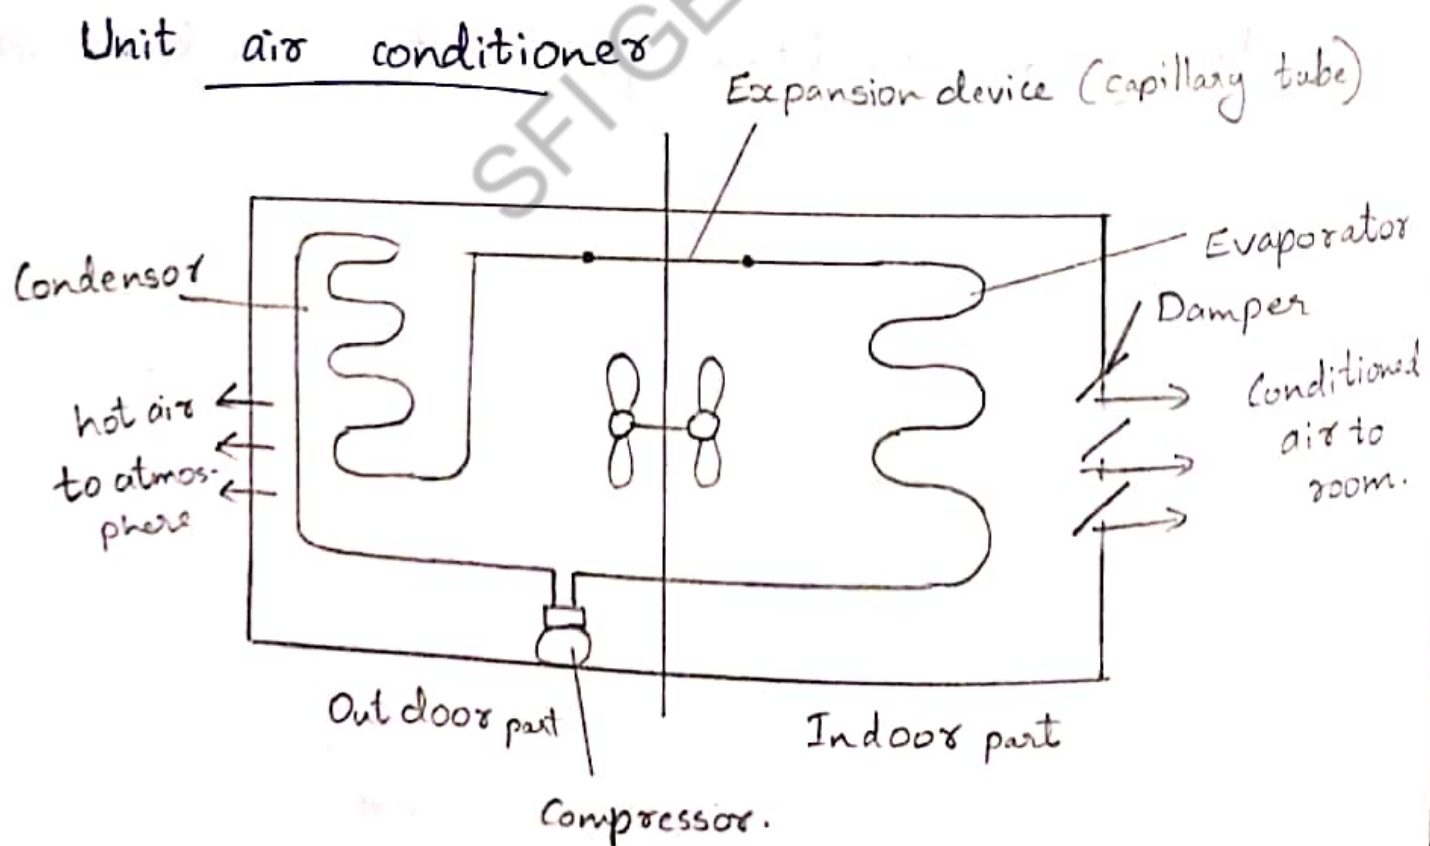 Unit air conditioner
SFI GE
Expansion device (capillary tube)
Condensor
Evaporator
Damper
hot air
to atmos-
phere
Conditioned
air to
room.
Outdoor part
Indoor part
Compressor.